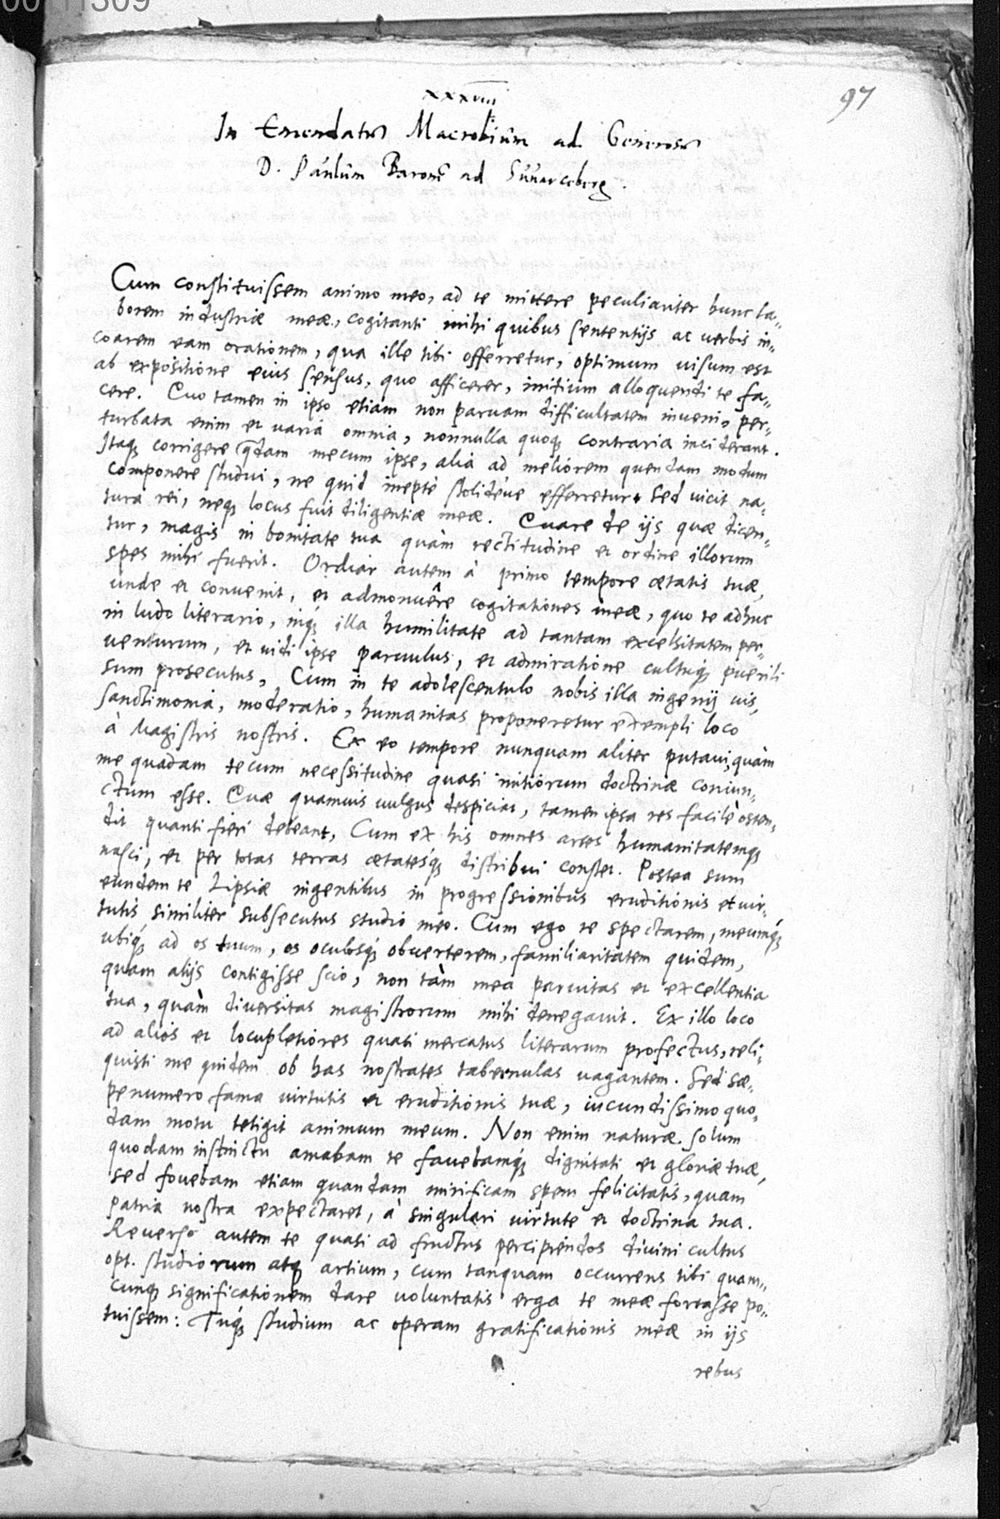 97
xxxviii
In Emendatū Macrobium ad Generosū
D. Paulum Baronē ad Suuarceberg.
Cum constituissem animo meo, ad te mittere peculiariter hunc la„
borem industriæ meæ, cogitanti mihi quibus sententijs ac verbis in„
coarem eam orationem, qua ille tibi offerretur, optimum uisum est
ab expositione eius sensus, quo afficerer, initium alloquendi te fa„
cere. Quo tamen in ipso etiam non paruam difficultatem inueni, per„
turbata enim et varia omnia, nonnulla quoq; contraria inciderant.
Itaq; corrigere q̃dam mecum ipse, alia ad meliorem quendam modum
componere studui, ne quid ineptè stolidéue efferretur. Sed uicit na„
tura rei, neq; locus fuit diligentiæ meæ. Quare de ijs quæ dicen„
tur, magis in bonitate tua quàm rectitudine et ordine illorum
spes mihi fuerit. Ordiar autem à primo tempore ætatis tuæ,
unde et conuenit, et admonuêre cogitationes meæ, quo te adhuc
in ludo literario, inq; illa humilitate ad tantam excelsitatem per„
uenturum, et uidi ipse paruulus, et admiratione cultuq; puerili
sum prosecutus, Cum in te adolescentulo nobis illa ingenij uis,
sanctimonia, moderatio, humanitas proponeretur exempli loco
à Magistris nostris. Ex eo tempore nunquam aliter putaui, quàm
me quadam tecum necessitudine quasi initiorum doctrinæ coniun„
ctum esse. Quæ quamuis uulgus despiciat, tamen ipsa res facilè osten„
dit quanti fieri debeant, Cum ex his omnes artes humanitatemq;
nasci, et per totas terras ætatesq; distribui constet. Postea sum
eundem te Lipsiæ ingentibus in progressionibus eruditionis et uir„
tutis similiter subsecutus studio meo. Cum ego te spectarem, meumq;
ubiq; ad os tuum, os oculosq; obuerterem, familiaritatem quidem,
quam alijs contigisse scio, non tàm mea paruitas et excellentia
tua, quàm diuersitas magistrorum mihi denegauit. Ex illo loco
ad alios et locupletiores quasi mercatus literarum profectus, reli„
quisti me quidem ob has nostrates tabernulas uagantem. Sed sæ„
penumero fama uirtutis et eruditionis tuæ, iucundissimo quo„
dam motu tetigit animum meum. Non enim naturæ solum
quodam instinctu amabam te fauebamq; dignitati et gloriæ tuæ,
sed fouebam etiam quandam mirificam spem felicitatis, quam
patria nostra expectaret, à singulari uirtute et doctrina tua.
Reuerso autem te quasi ad fructus percipiendos diuini cultus
opt. studiorum atq; artium, cum tanquam occurrens tibi quam„
cunq; significationem dare uoluntatis erga te meæ fortasse po„
tuissem: Tuq; studium ac operam gratificationis meæ in ijs
rebus